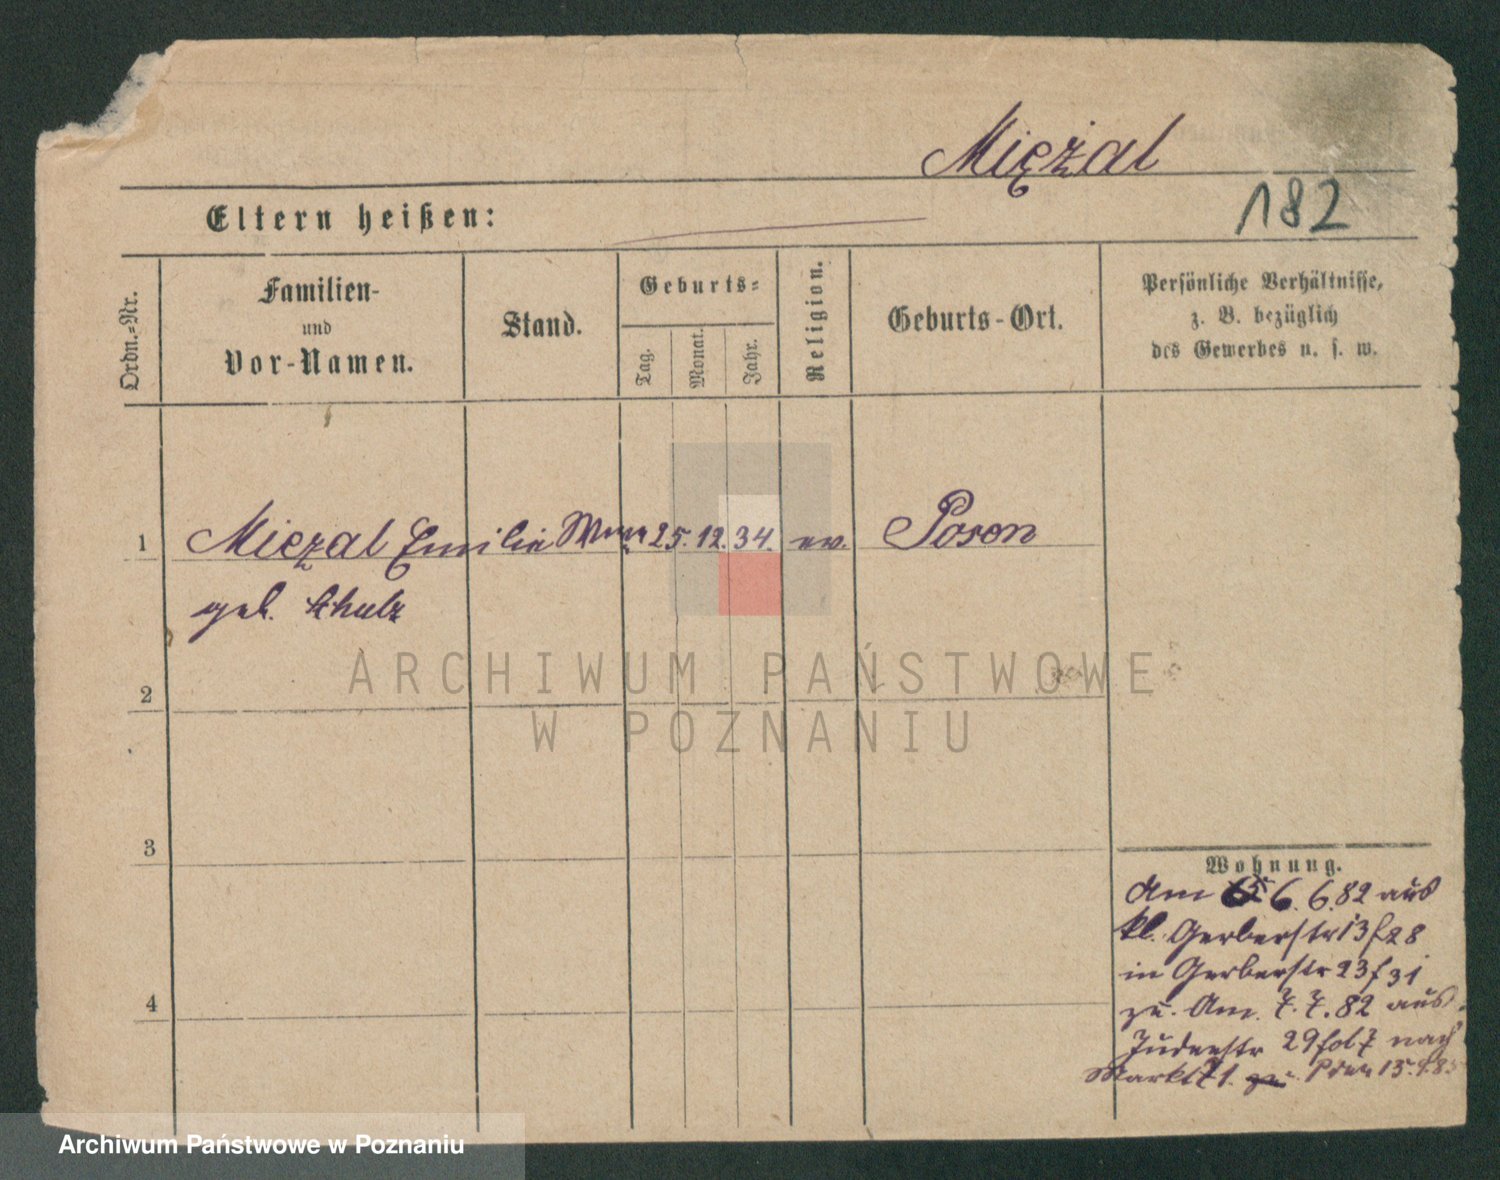 Miężal
182
Eltern heißen:
Ordn.-Nr.
Familien-
und
Vor-Namen.
Stand.
Geburts-
Tag.
Monat.
Jahr.
Religion.
Geburts-Ort.
Persönliche Verhältnisse,
z. B. bezüglich
des Gewerbes u. s. w.
1
Miezal Emilie 25. 12. 34. ev. Posen
geb. Schulz
2
3
4
Wohnung.
Am 6. 6. 82 aus
kl. Gerberstr 13 f 28
in Gerberstr 23 f 31
zu. Am 7. 7. 82 aus
Judenstr 29 fol 7 nach
Markt 71.
ARCHIWUM PAŃSTWOWE
W POZNANIU
Archiwum Państwowe w Poznaniu